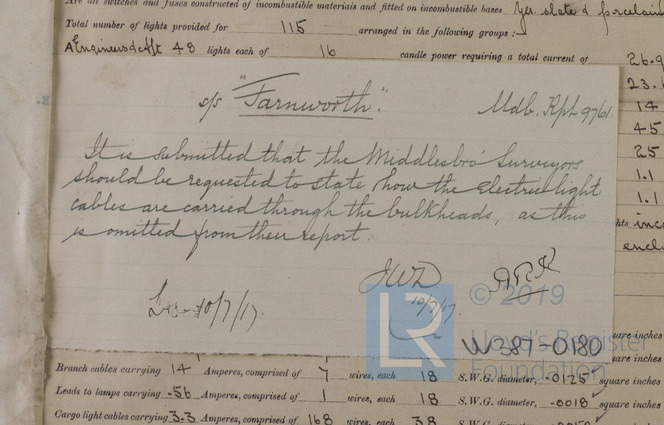 Are all switches and fuses constructed of incombustible materials and fitted on incombustible bases Yes slate & porcelain
Total number of lights provided for 115 arranged in the following groups :—
A Engineers dept 48 lights each of 16 candle power requiring a total current of 26.9
23.
14
45
25
1.1
1.1
s/s "Farnworth". Mdb. Rpt 9761.
It is submitted that the Middlesbro' Surveyors
should be requested to state how the electric light
cables are carried through the bulkheads, as this
is omitted from their report.
JWD
10/7/17.
10/7/17.
© 2019
LR
Lloyd's Register
Foundation
W387-0180
square inches
square inches
Branch cables carrying 14 Amperes, comprised of 7 wires, each 18 S.W.G. diameter, .0125 square inches
Leads to lamps carrying .56 Amperes, comprised of 1 wires, each 18 S.W.G. diameter, .0018 square inches
Cargo light cables carrying 3.3 Amperes, comprised of 168 wires, each 38 S.W.G. diameter, square inches